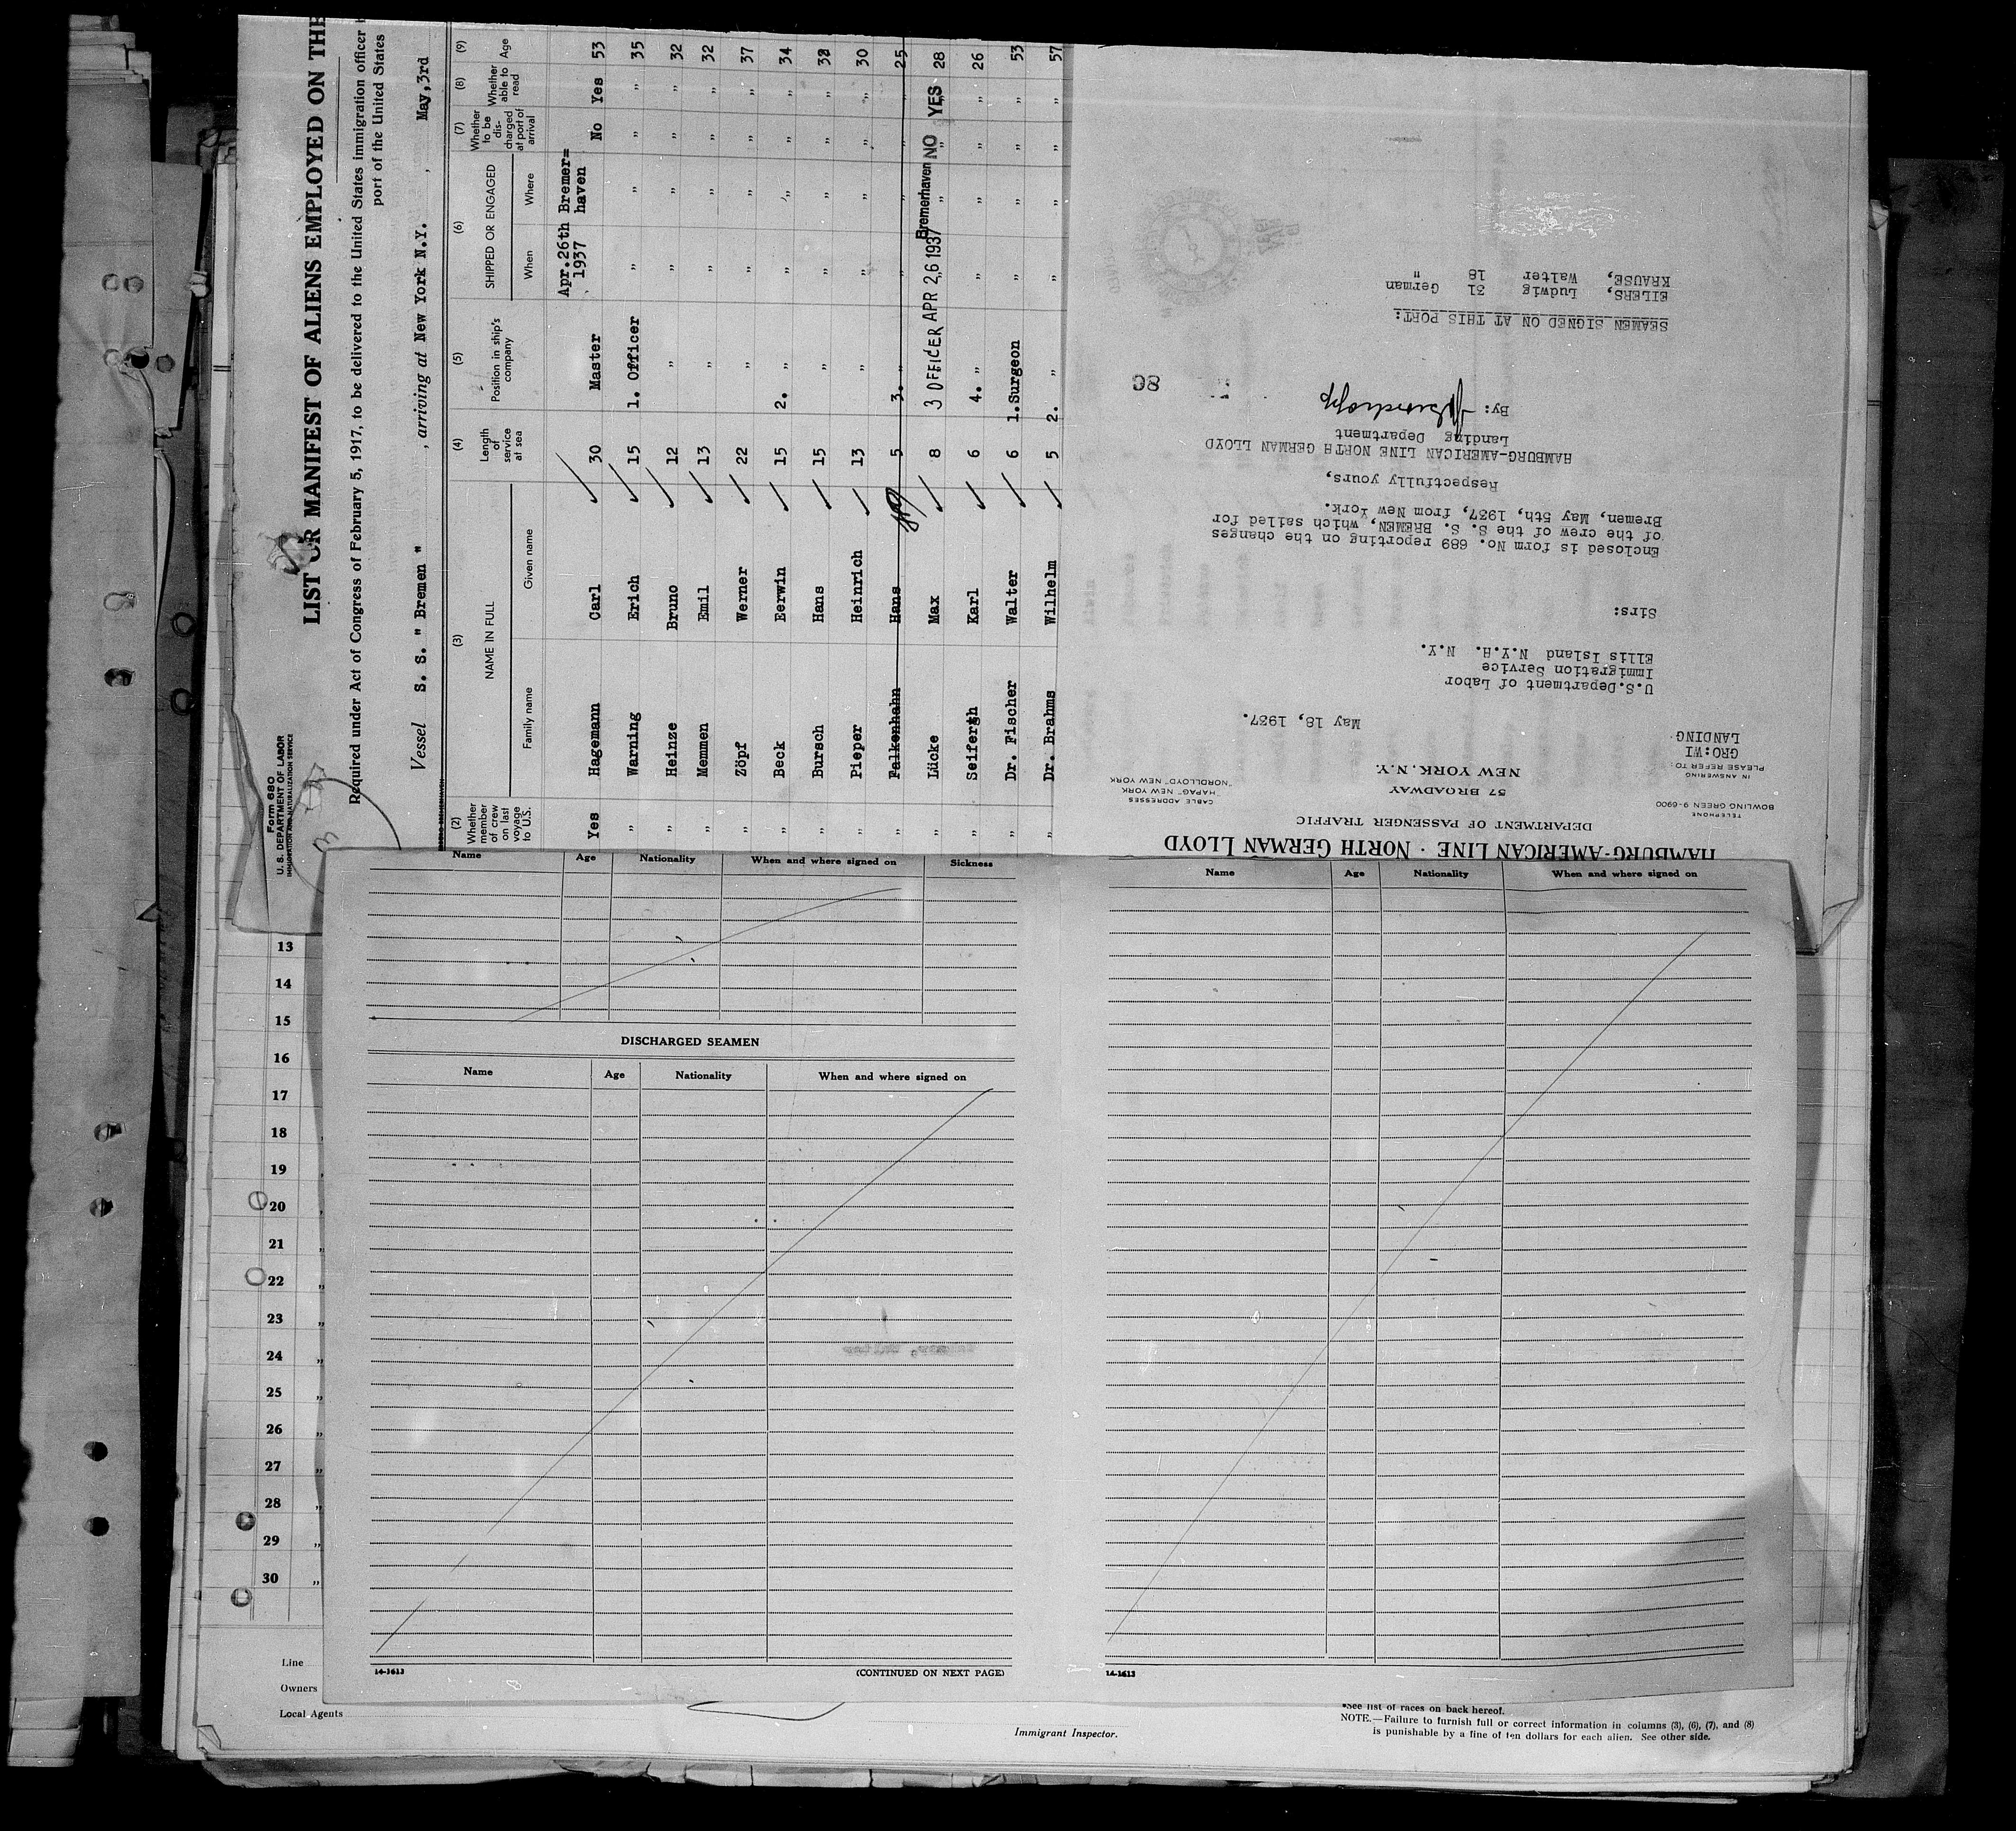 Form 680
U. S. DEPARTMENT OF LABOR
IMMIGRATION AND NATURALIZATION SERVICE
LIST OR MANIFEST OF ALIENS EMPLOYED ON THE
Required under Act of Congress of February 5, 1917, to be delivered to the United States immigration officer
port of the United States
Vessel S. S. " Bremen " , arriving at New York N.Y. , May,3rd
(2) (3) (4) (5) (6) (7) (8) (9)
Whether member of crew on last voyage to U.S. NAME IN FULL Family name Given name Length of service at sea Position in ship's company SHIPPED OR ENGAGED When Where Whether to be discharged at port of arrival Whether able to read Age
Yes Hagemann Carl 30 Master Apr.26th 1937 Bremer=haven No Yes 53
" Warning Erich 15 1. Officer " " " " 35
" Heinze Bruno 12 " " " " " 32
" Memmen Emil 13 " " " " " 32
" Zöpf Werner 22 " " " " " 37
" Beck Eerwin 15 2. " " " " " 34
" Bursch Hans 15 " " " " " 38
" Pieper Heinrich 13 " " " " " 30
" Falkenhahn Hans 5 3. " " " " " 25
" Lücke Max 8 3 OFFICER APR 26 1937 Bremerhaven NO YES 28
" Seiferth Karl 6 4. " " " " " 26
" Dr. Fischer Walter 6 1.Surgeon " " " " 53
" Dr. Brahms Wilhelm 5 2. " " " " " 57
HAMBURG-AMERICAN LINE · NORTH GERMAN LLOYD
DEPARTMENT OF PASSENGER TRAFFIC
57 BROADWAY
NEW YORK, N.Y.
TELEPHONE
BOWLING GREEN 9-6900
CABLE ADDRESSES
"HAPAG" NEW YORK
"NORDLLOYD" NEW YORK
IN ANSWERING
PLEASE REFER TO:
GRO:WI
LANDING
May 18, 1937.
U.S.Department of Labor
Immigration Service
Ellis Island N.Y.H. N.Y.
Sirs:
Enclosed is form No. 689 reporting on the changes
of the crew of the S. S. BREMEN, which sailed for
Bremen, May 5th, 1937, from New York.
Respectfully yours,
HAMBURG-AMERICAN LINE NORTH GERMAN LLOYD
Landing Department
By:
86
SEAMEN SIGNED ON AT THIS PORT:
EILERS, Ludwig 31 German
KRAUSE, Walter 18 "
Name Age Nationality When and where signed on Sickness
DISCHARGED SEAMEN
Name Age Nationality When and where signed on
14-1613 (CONTINUED ON NEXT PAGE)
Name Age Nationality When and where signed on
14-1613
13
14
15
16
17
18
19
20
21
22
23
24
25
26
27
28
29
30
Line
Owners
Local Agents
Immigrant Inspector.
*See list of races on back hereof.
NOTE.—Failure to furnish full or correct information in columns (3), (6), (7), and (8)
is punishable by a fine of ten dollars for each alien. See other side.